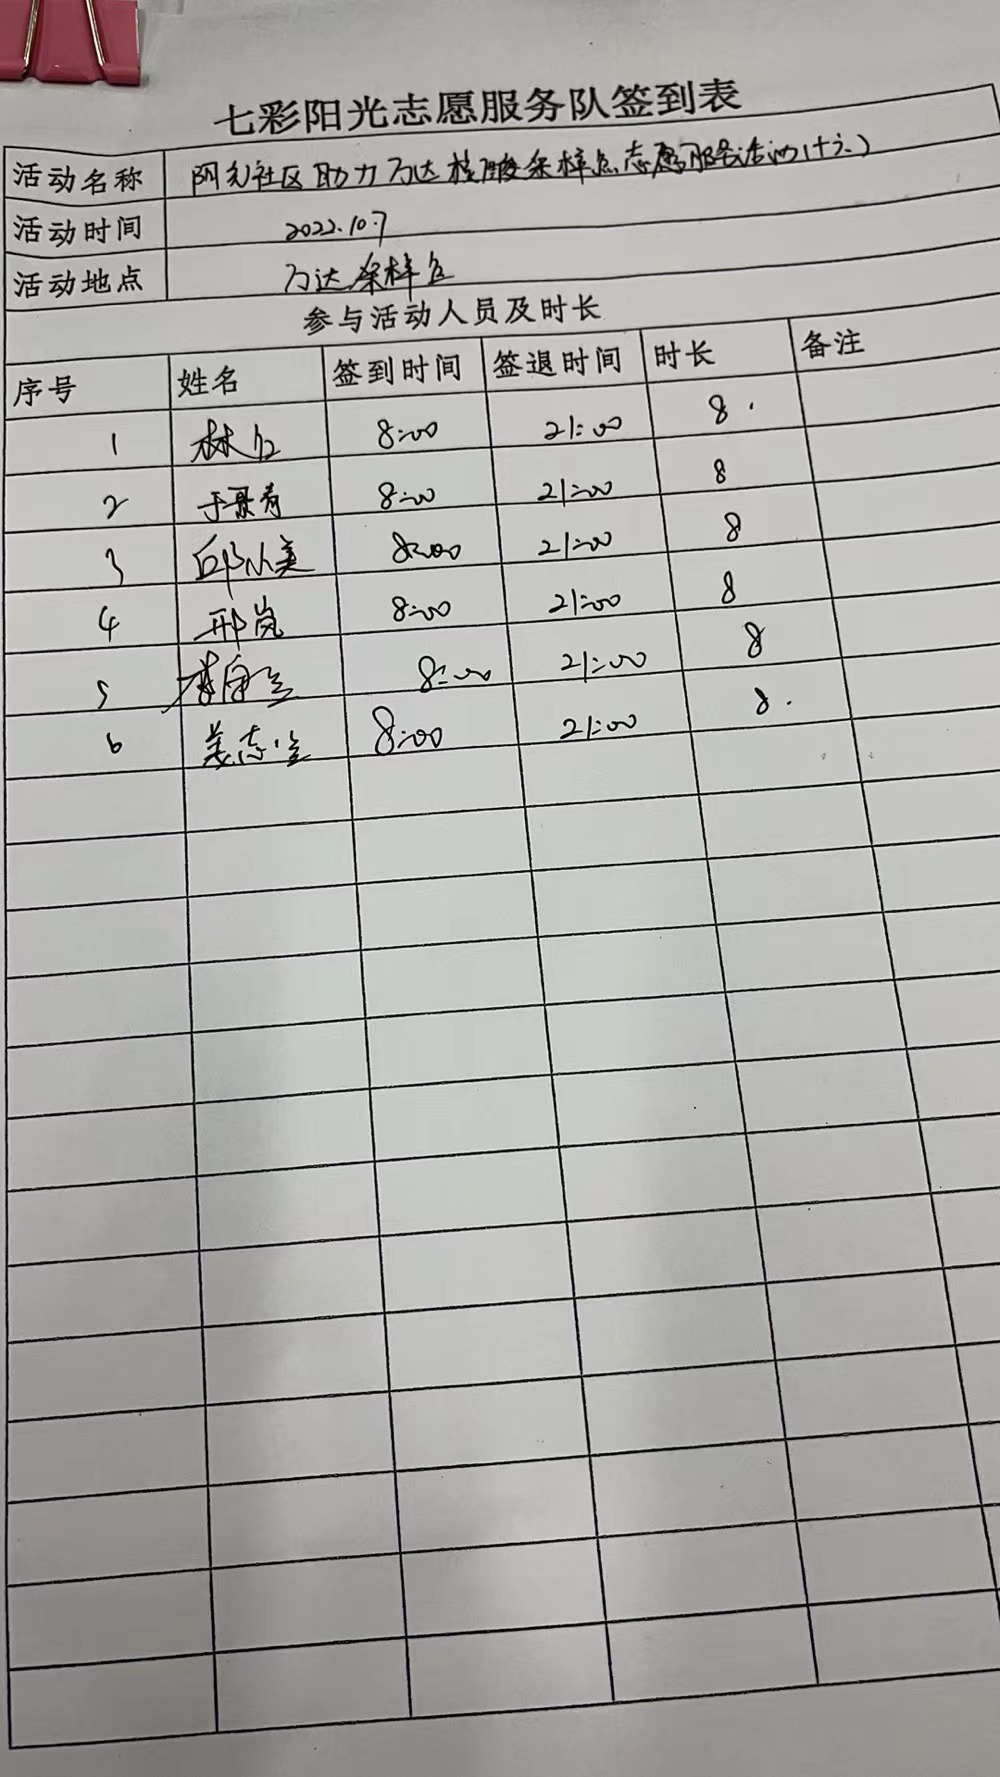 七彩阳光志愿服务队签到表
活动名称 阳光社区助力万达核酸采样点志愿服务活动(十六)
活动时间 2022.10.7
活动地点 万达采样点
参与活动人员及时长
序号 姓名 签到时间 签退时间 时长 备注
1 林 8:00 21:00 8.
2 于景青 8:00 21:00 8
3 邱从美 8:00 21:00 8
4 邢岚 8:00 21:00 8
5 8:00 21:00 8
6 姜志 8:00 21:00 8.